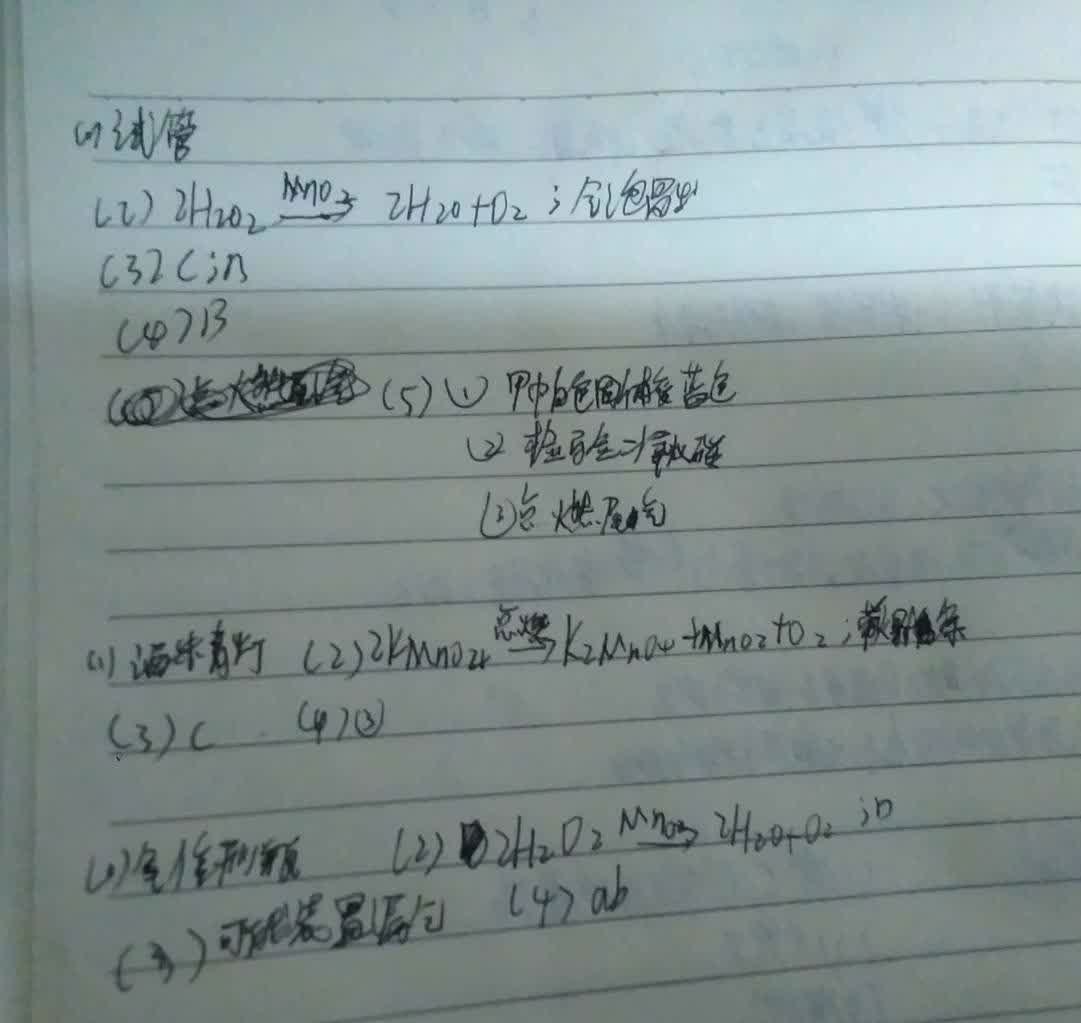 (1) 试管
(2) 2H2O2 MnO2→ 2H2O+O2 ; 气泡冒出
(3) C ; B
(4) B
(5) (1) 甲中白色固体变蓝色
(2) 检验二氧化碳
(3) 点燃尾气
(1) 酒精灯 (2) 2KMnO4 点燃→ K2MnO4+MnO2+O2 ;
(3) C (4) ③
(1) 锥形瓶 (2) 2H2O2 MnO2→ 2H2O+O2 ; D
(3) 可能装置漏气 (4) ab